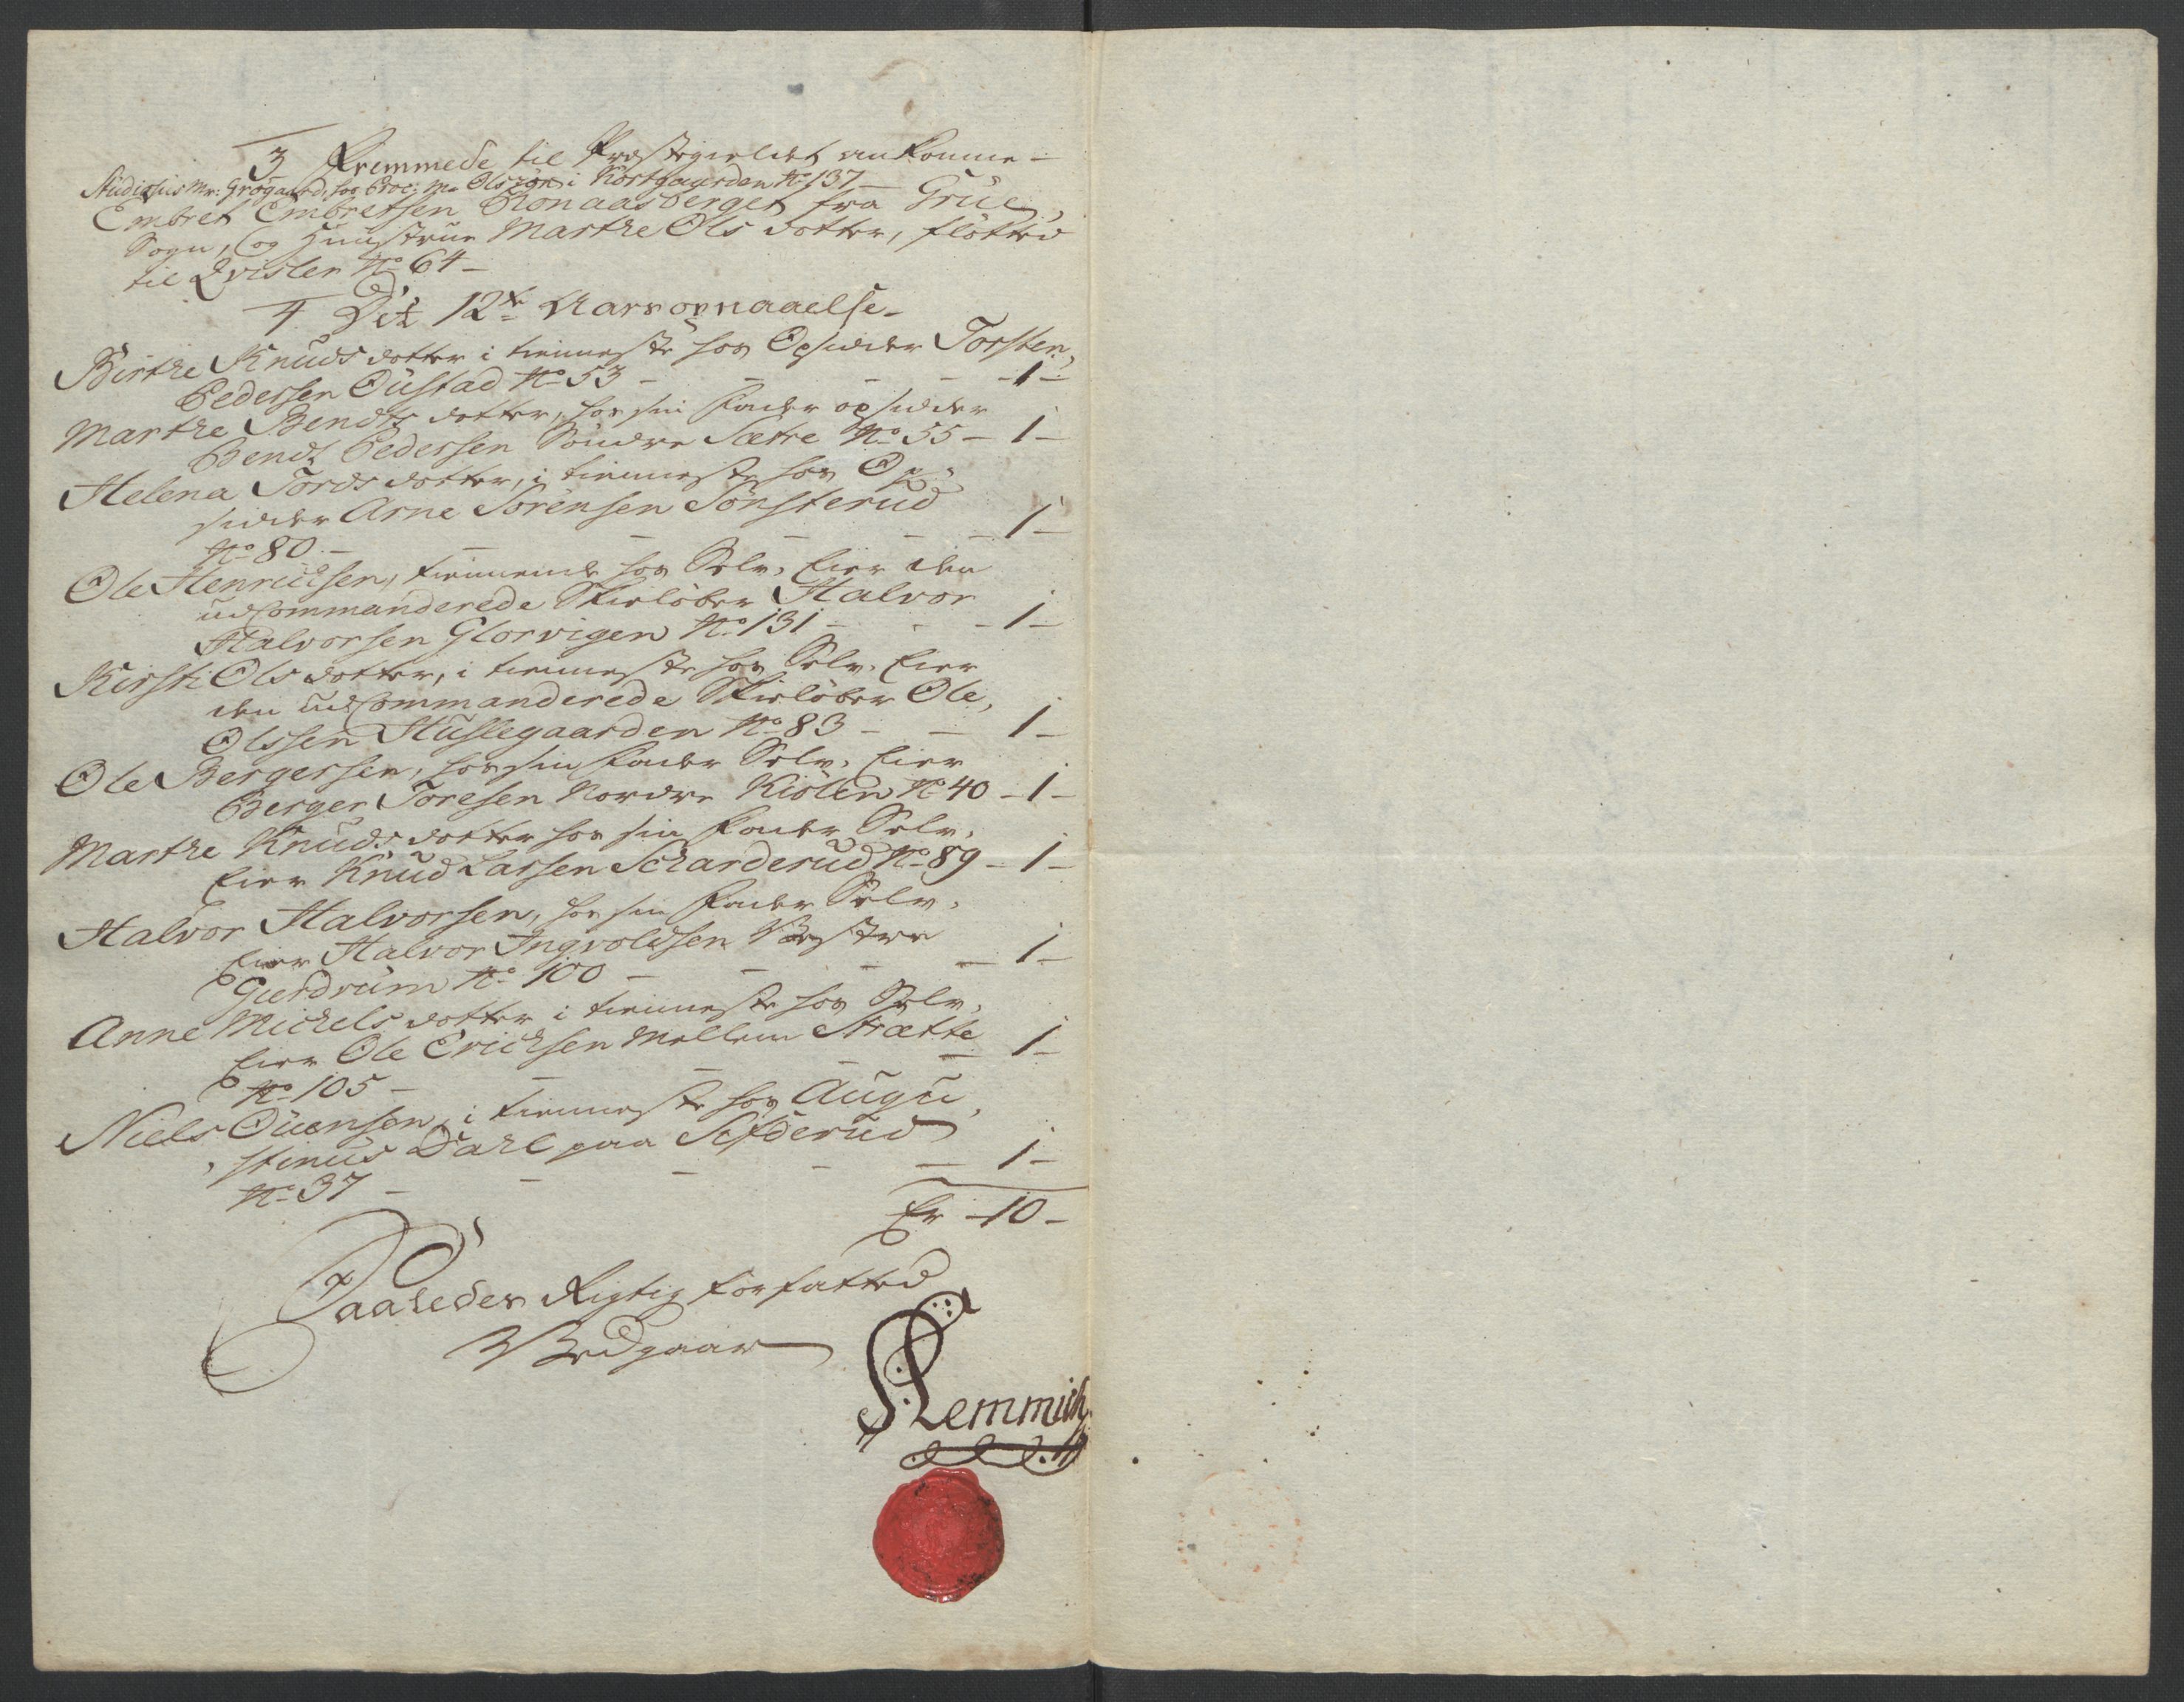 3 Fremmede til Præstegieldet ankomne -
Studiosus Mr: Grøgaard, hos Proc: M. Olsøn i Kortgaarden No 137 -
Embret Embretsen Ronaasberget fra Grue,
Sogn, og Huustrue Marthe Ols dotter, fløtted
til Qvisler No 64 -
4 Det 12te Aars opnaaelse -
Birthe Knuds dotter i tienneste hos Opsidder Torsten,
Pedersen Oustad No 53 - - - - - 1 -
Marthe Bendts dotter, hos sin Fader opsidder
Bendt Pedersen Søndre Sætre No 55 - 1 -
Helena Tords dotter, i tienneste hos Op,
sidder Arne Sørensen Sønsterud
No 80 - - - - - - 1 -
Ole Henricksen, tiennende hos Selv, Eier den
udCommanderede Skieløber Halvor
Halvorsen Glorvigen No 131 - - - 1 -
Kirsti Ols dotter, i tienneste hos Selv, Eier
den udCommanderede Skieløber Ole,
Olssen Huslegaarden No 83 - - 1 -
Ole Bergersen, hos sin Fader Selv, Eier
Berger Toresen Nordre Kiølen No 40 - 1 -
Marthe Knuds dotter hos sin Fader Selv,
Eier Knud Larsen Scharderud No 89 - 1 -
Halvor Halvorsen, hos sin Fader Selv,
Eier Halvor Ingvoldsen Vestre
Gierdrum No 100 - - - - 1 -
Anne Michels dotter i tienneste hos Selv,
Eier Ole Ericksen Mellem Strætte
No 105 - - - - - 1 -
Niels Ouensen, i tienneste hos Augu,
stinus Dahl paa Sifderud
No 37 - - - - - 1 -
Er - 10 -
Saaledes Rigtig forfatted
Vedgaar
Klemmich